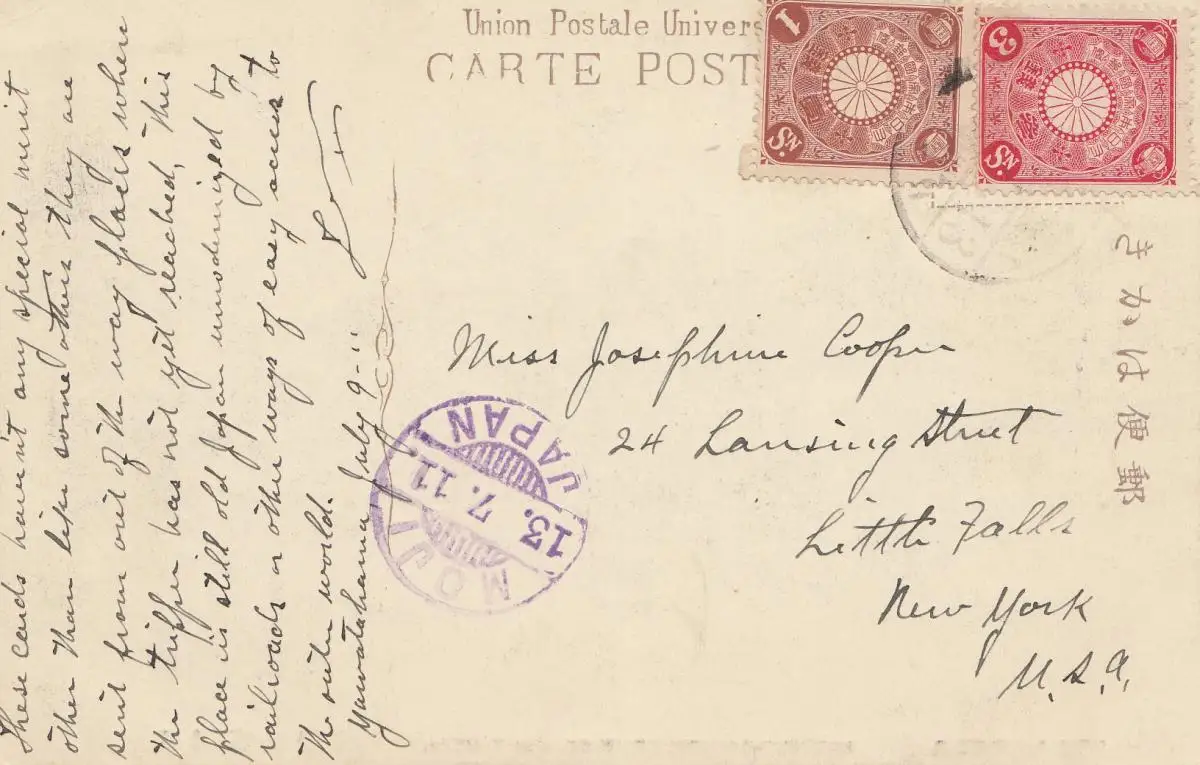 Union Postale Univers
CARTE POST
1
Sn.
3
Sn.
きかは便郵
These cards havent any special merit
other than like some others they are
sent from out of the way places where
the tripper has not yet reached, this
place is still old Japan unmodernized by
railroads or other ways of easy access to
the outer world.
Yawatahama July 9-11
Miss Josephine Cooper
24 Lansing Street
Little Falls
New York
U.S.A.
MOJI
13. 7. 11
JAPAN